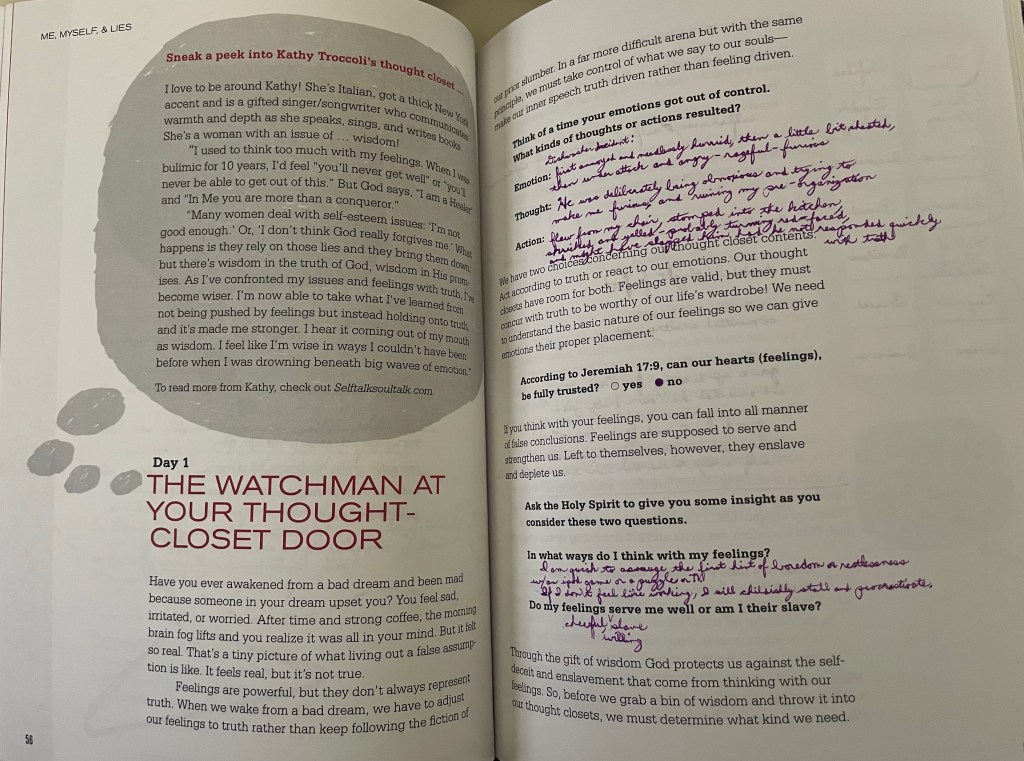 ME, MYSELF, & LIES
Sneak a peek into Kathy Troccoli's thought closet ...
I love to be around Kathy! She's Italian, got a thick New York
accent and is a gifted singer/songwriter who communicates
warmth and depth as she speaks, sings, and writes books.
She's a woman with an issue of ... wisdom!
"I used to think too much with my feelings. When I was
bulimic for 10 years, I'd feel "you'll never get well" or "you'll
never be able to get out of this." But God says, "I am a Healer"
and "In Me you are more than a conqueror."
"Many women deal with self-esteem issues: 'I'm not
good enough.' Or, 'I don't think God really forgives me.' What
happens is they rely on those lies and they bring them down;
but there's wisdom in the truth of God, wisdom in His prom-
ises. As I've confronted my issues and feelings with truth, I've
become wiser. I'm now able to take what I've learned from
not being pushed by feelings but instead holding onto truth,
and it's made me stronger. I hear it coming out of my mouth
as wisdom. I feel like I'm wise in ways I couldn't have been
before when I was drowning beneath big waves of emotion."
To read more from Kathy, check out Selftalksoultalk.com.
Day 1
THE WATCHMAN AT
YOUR THOUGHT-
CLOSET DOOR
Have you ever awakened from a bad dream and been mad
because someone in your dream upset you? You feel sad,
irritated, or worried. After time and strong coffee, the morning
brain fog lifts and you realize it was all in your mind. But it felt
so real. That's a tiny picture of what living out a false assump-
tion is like. It feels real, but it's not true.
Feelings are powerful, but they don't always represent
truth. When we wake from a bad dream, we have to adjust
our feelings to truth rather than keep following the fiction of
56
our prior slumber. In a far more difficult arena but with the same
principle, we must take control of what we say to our souls—
make our inner speech truth driven rather than feeling driven.
Think of a time your emotions got out of control.
What kinds of thoughts or actions resulted?
Dishwasher Incident:
Emotion: first annoyed and needlessly hurried, then a little bit cheated,
then under attack and angry-rageful-furious
Thought: He was deliberately being obnoxious and trying to
make me furious, and ruining my pre-organization
Action: flew from my chair, stomped into the kitchen,
shrieked and yelled - probably turning red-faced,
and might have slapped him, had he not responded quickly
with truth
We have two choices concerning our thought closet contents:
Act according to truth or react to our emotions. Our thought
closets have room for both. Feelings are valid, but they must
concur with truth to be worthy of our life's wardrobe! We need
to understand the basic nature of our feelings so we can give
emotions their proper placement.
According to Jeremiah 17:9, can our hearts (feelings),
be fully trusted? yes no
If you think with your feelings, you can fall into all manner
of false conclusions. Feelings are supposed to serve and
strengthen us. Left to themselves, however, they enslave
and deplete us.
Ask the Holy Spirit to give you some insight as you
consider these two questions.
In what ways do I think with my feelings?
I am quick to assuage the first hint of boredom or restlessness
w/an game or a puzzle or TV
If I don't feel like working, I will childishly stall and procrastinate.
Do my feelings serve me well or am I their slave?
cheerful slave
willing
Through the gift of wisdom God protects us against the self-
deceit and enslavement that come from thinking with our
feelings. So, before we grab a bin of wisdom and throw it into
our thought closets, we must determine what kind we need.